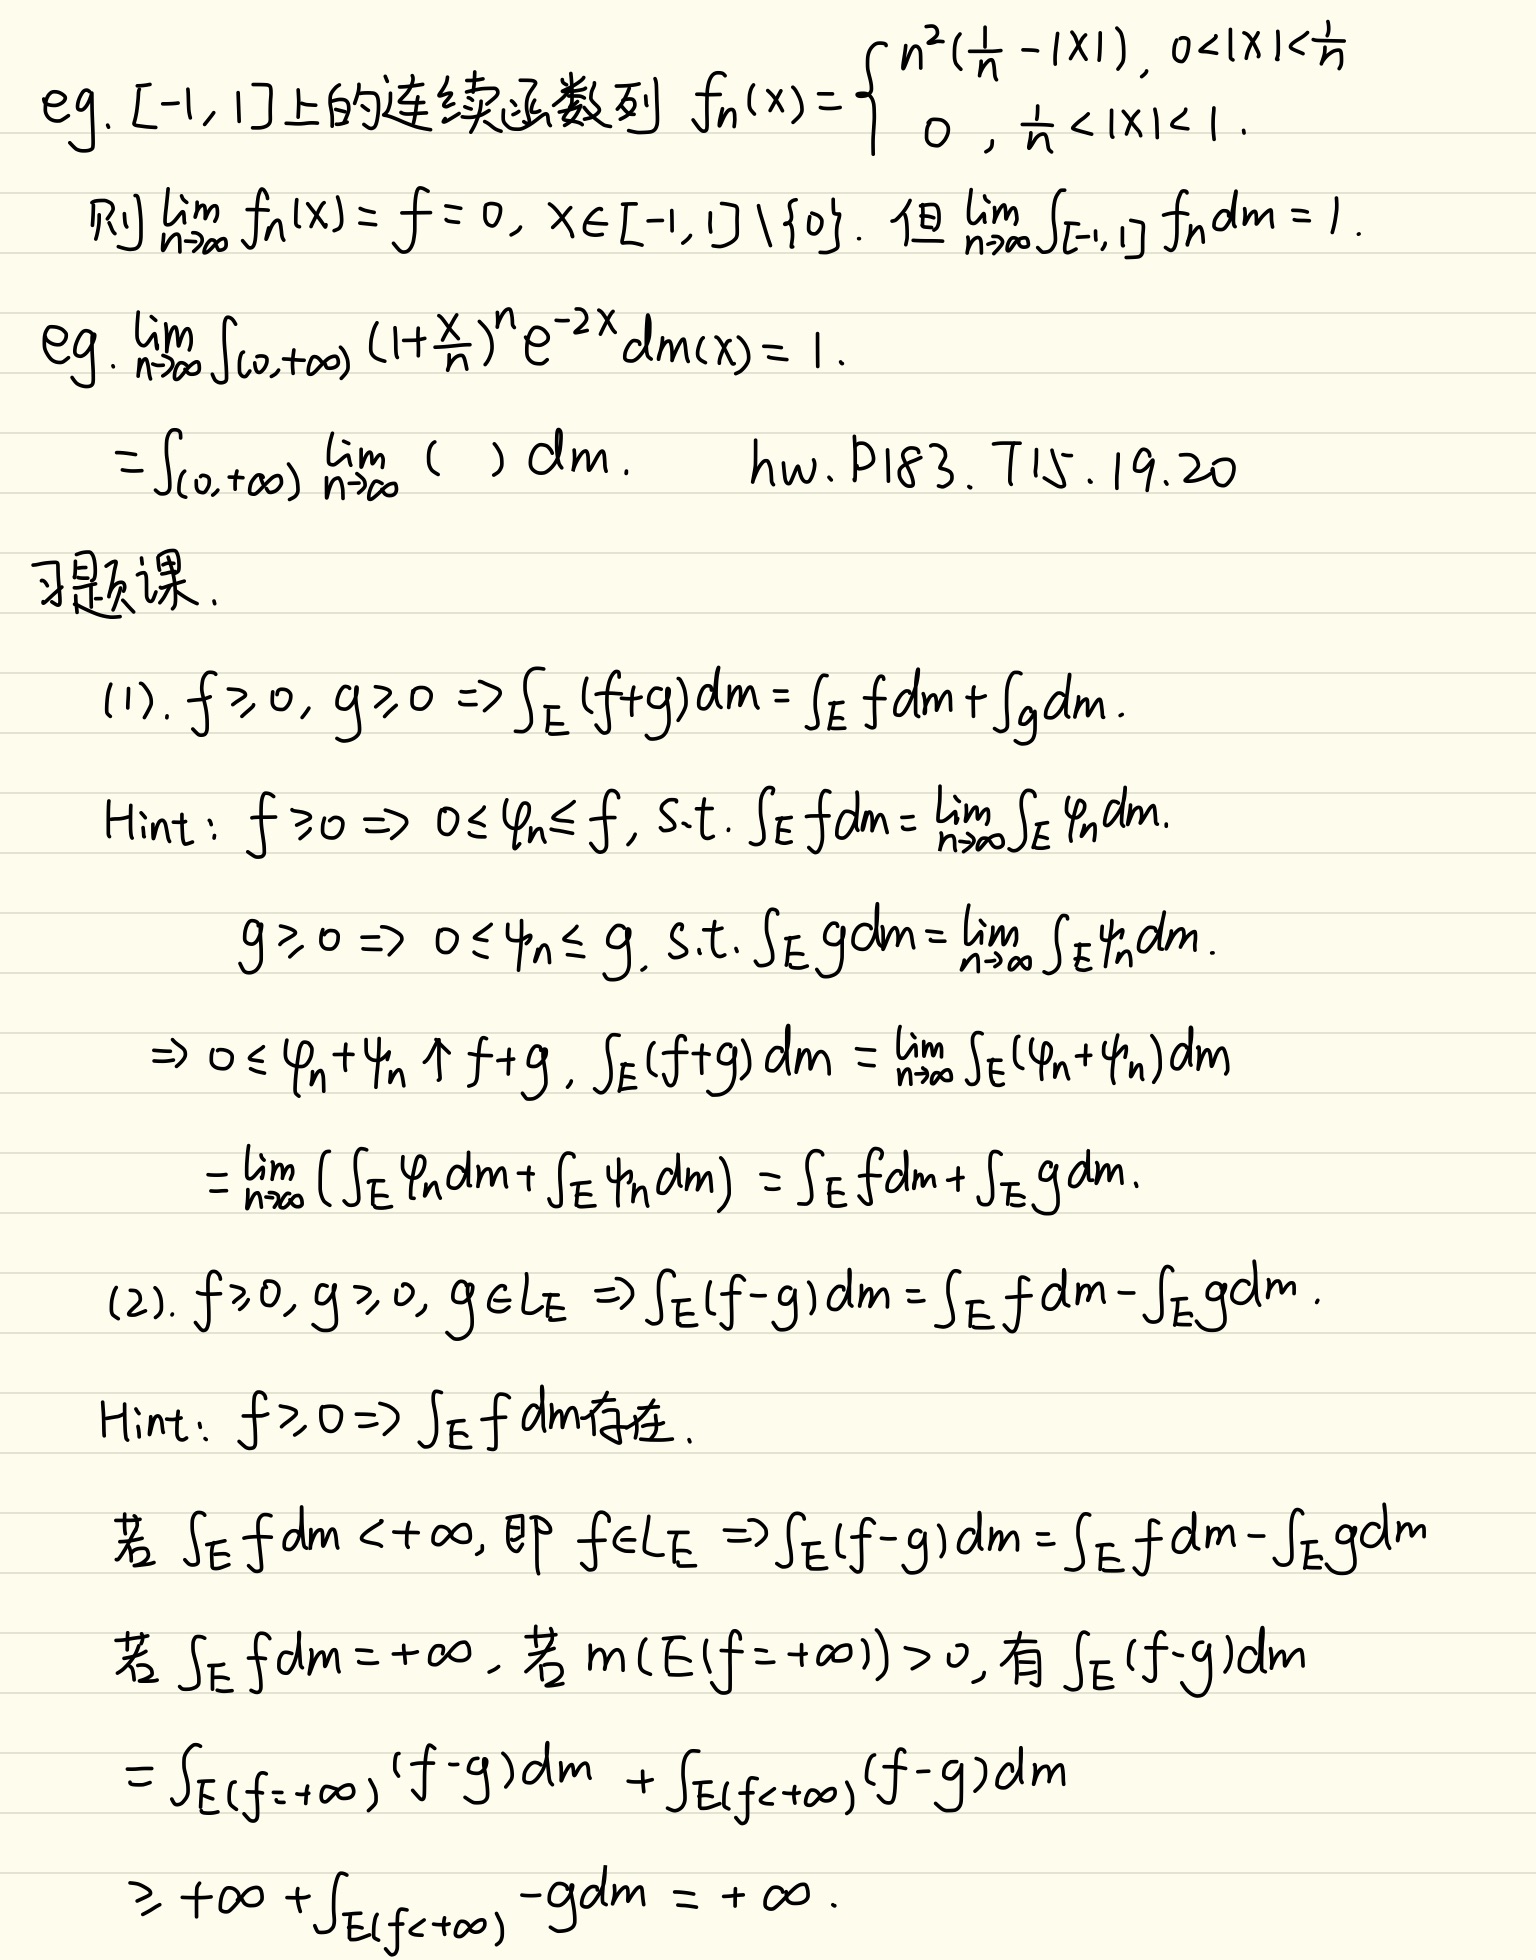 eg. [-1, 1]上的连续函数列 fₙ(x) = { n²(1/n - |x|), 0<|x|<1/n
0 , 1/n < |x| < 1 .
则 lim_{n→∞} fₙ(x) = f = 0, x∈[-1, 1] \ {0}. 但 lim_{n→∞} ∫_{[-1, 1]} fₙ dm = 1.
eg. lim_{n→∞} ∫_{(0,+∞)} (1+x/n)ⁿ e^{-2x} dm(x) = 1.
= ∫_{(0,+∞)} lim_{n→∞} ( ) dm. hw. P183. T15. 19. 20
习题课.
(1). f≥0, g≥0 => ∫_E (f+g) dm = ∫_E f dm + ∫_g dm.
Hint: f≥0 => 0≤φₙ≤f, s.t. ∫_E f dm = lim_{n→∞} ∫_E φₙ dm.
g≥0 => 0≤ψₙ≤g. s.t. ∫_E g dm = lim_{n→∞} ∫_E ψₙ dm.
=> 0≤φₙ+ψₙ ↑ f+g, ∫_E (f+g) dm = lim_{n→∞} ∫_E (φₙ+ψₙ) dm
= lim_{n→∞} (∫_E φₙ dm + ∫_E ψₙ dm) = ∫_E f dm + ∫_E g dm.
(2). f≥0, g≥0, g∈L_E => ∫_E (f-g) dm = ∫_E f dm - ∫_E g dm.
Hint: f≥0 => ∫_E f dm存在.
若 ∫_E f dm < +∞, 即 f∈L_E => ∫_E (f-g) dm = ∫_E f dm - ∫_E g dm
若 ∫_E f dm = +∞. 若 m(E(f=+∞)) > 0, 有 ∫_E (f-g) dm
= ∫_{E(f=+∞)} (f-g) dm + ∫_{E(f<+∞)} (f-g) dm
≥ +∞ + ∫_{E(f<+∞)} -g dm = +∞.